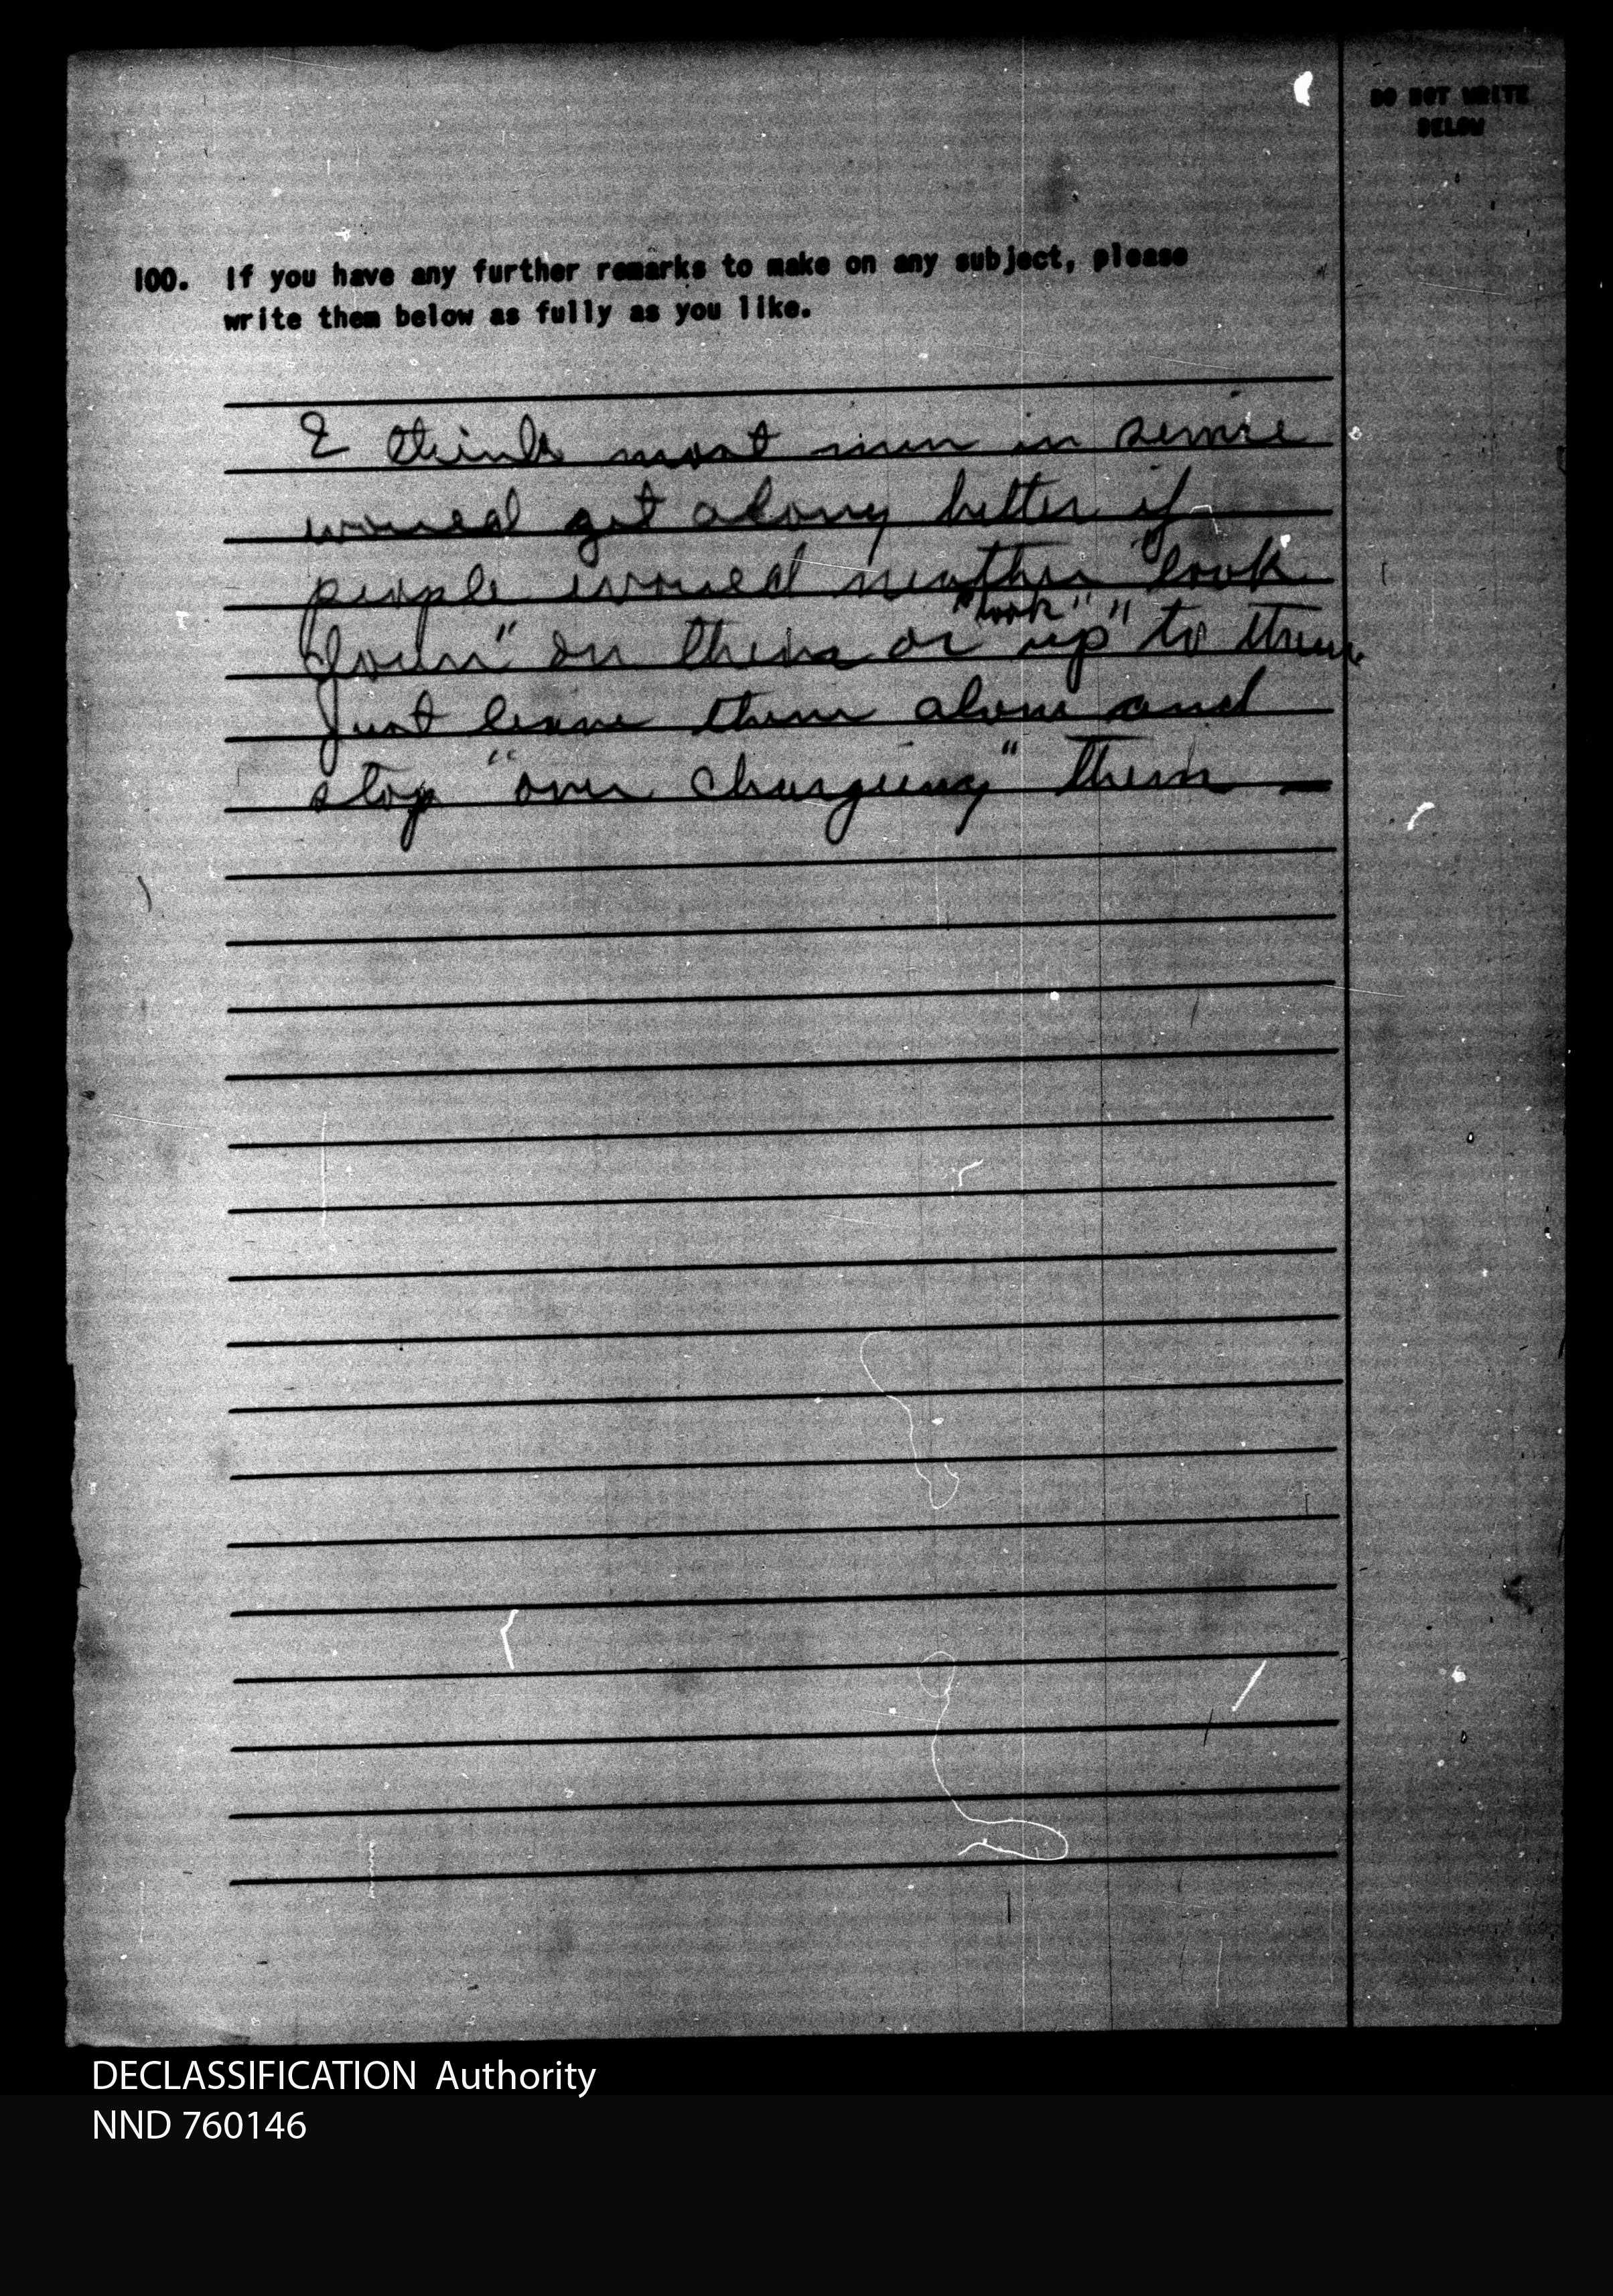 DO NOT WRITE
BELOW
100. If you have any further remarks to make on any subject, please
write them below as fully as you like.
I think most men in service
would get along better if
people would neather "look
"look"
down" on them or "up" to them.
Just leave them alone and
stop "over chargeing" them —
DECLASSIFICATION Authority
NND 760146